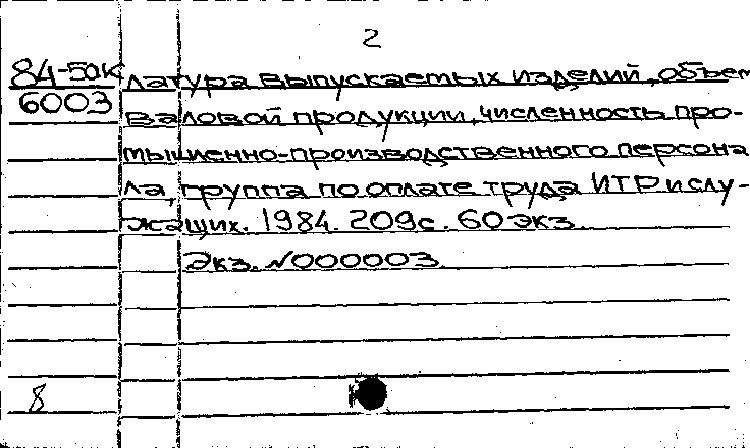 2
84-50К латура выпускаемых изделий, объем
6003 валовой продукции, численность про-
мышленно-производственного персона
ла, группа по оплате труда ИТР и слу-
жащих. 1984. 209с. 60 экз.
Экз. N000003.
8